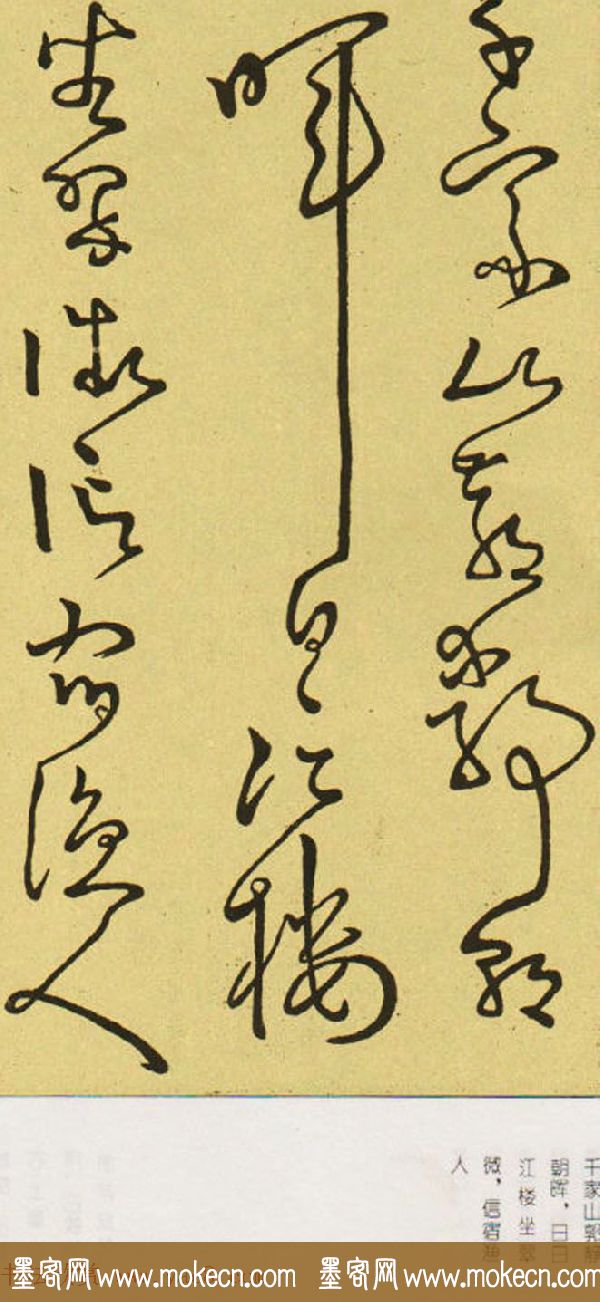 千家山郭静朝
晖日日江楼
坐翠微信宿渔人
千家山郭静
朝晖，日日
江楼坐翠
微，信宿渔
人
墨客网 www.mokecn.com 墨客网 www.mokecn.com